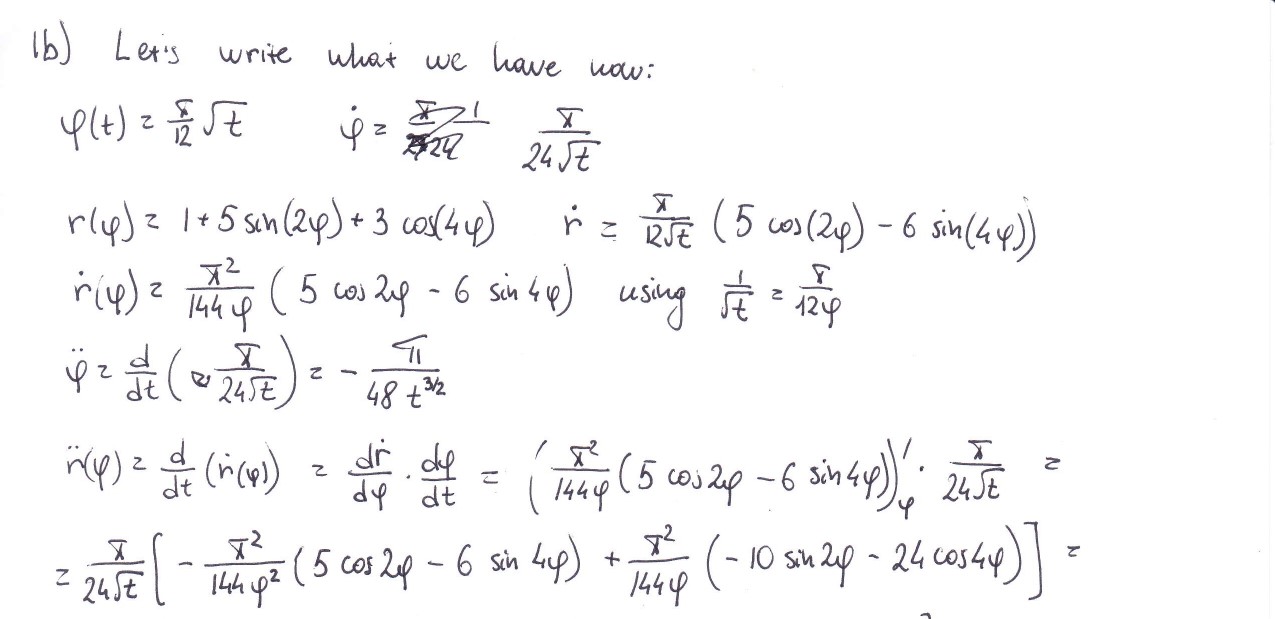 1b) Let's write what we have now:
φ(t) = π/12 √t    φ̇ = π/(24√t)
r(φ) = 1 + 5 sin(2φ) + 3 cos(4φ)    ṙ = π/(12√t) (5 cos(2φ) - 6 sin(4φ))
ṙ(φ) = π²/(144φ) (5 cos 2φ - 6 sin 4φ)   using 1/√t = π/(12φ)
φ̈ = d/dt (π/(24√t)) = - π/(48 t^(3/2))
r̈(φ) = d/dt (ṙ(φ)) = dṙ/dφ · dφ/dt = (π²/(144φ) (5 cos 2φ - 6 sin 4φ))'_φ · π/(24√t) =
= π/(24√t) [ - π²/(144φ²) (5 cos 2φ - 6 sin 4φ) + π²/(144φ) (-10 sin 2φ - 24 cos 4φ) ] =